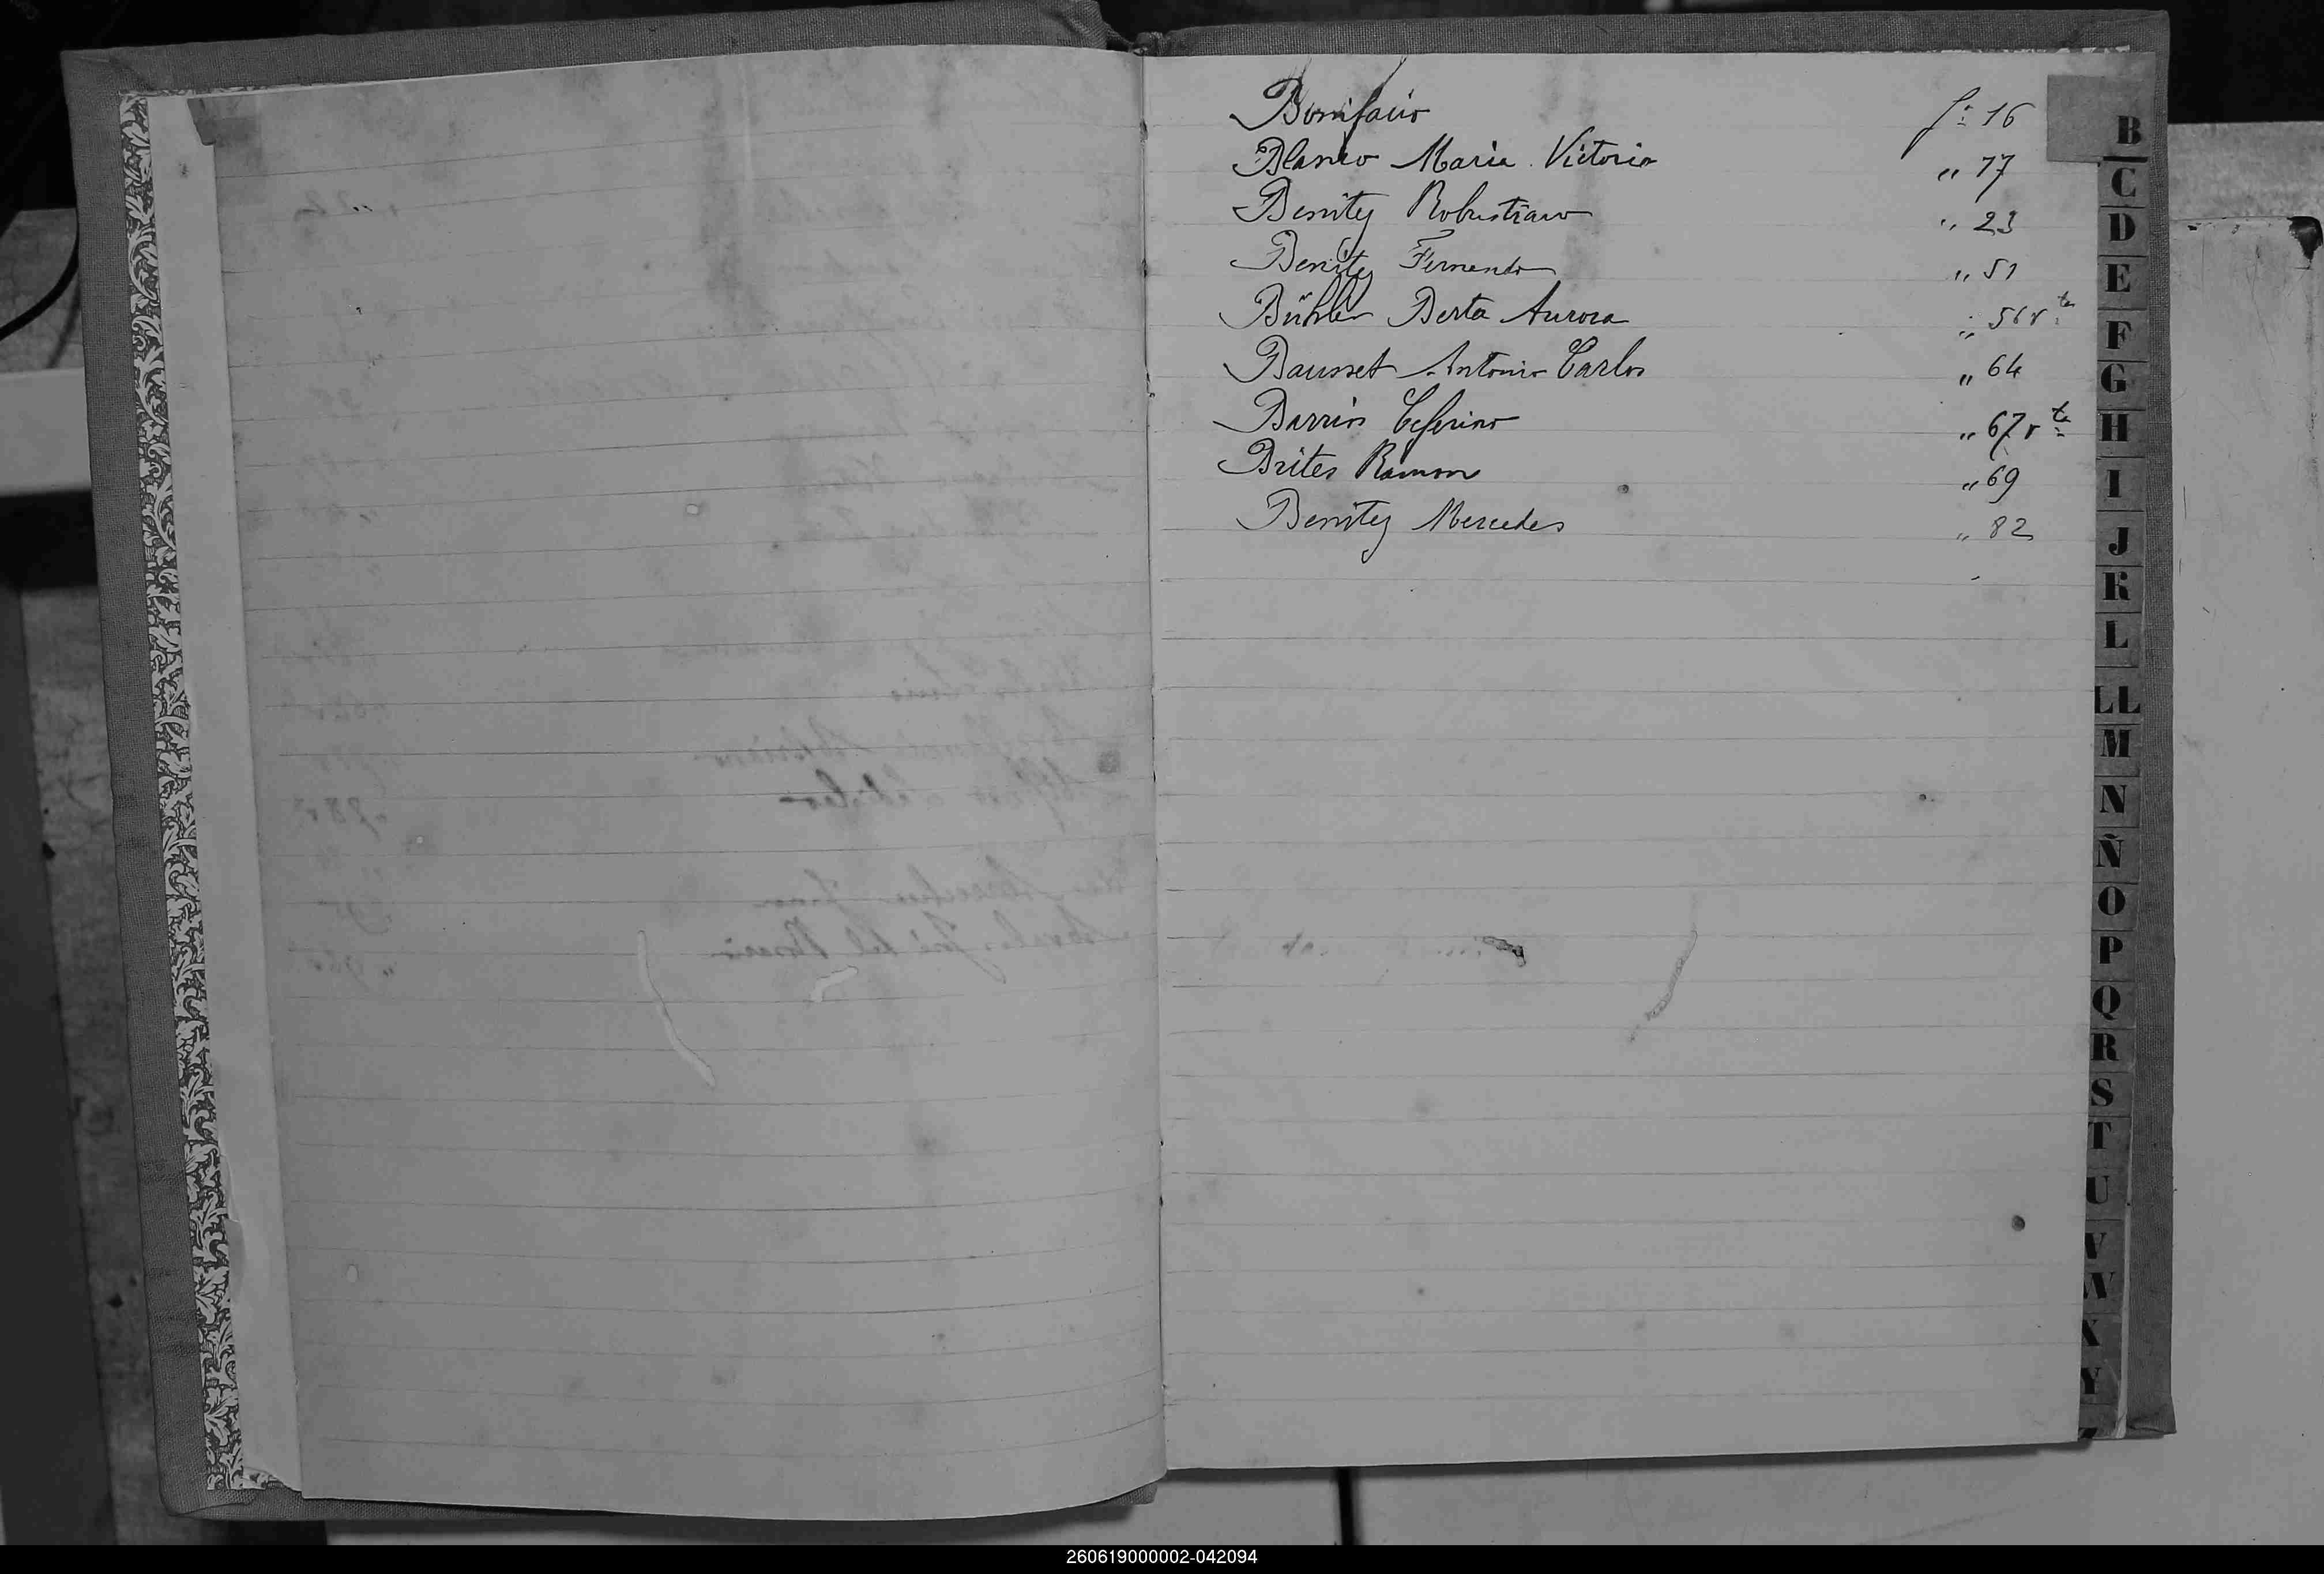 Bonifacio f: 16
Blanco Maria Victoria " 17
Benitez Robustiano " 23
Benitez Fernando " 51
Bühler Berta Aurora " 56 v ta
Bausset Antonio Carlos " 64
Barrios Ceferino " 67 v ta
Brites Ramon " 69
Benitez Mercedes " 82
B
C
D
E
F
G
H
I
J
K
L
LL
M
N
Ñ
O
P
Q
R
S
T
U
V
W
X
Y
Z
260619000002-042094